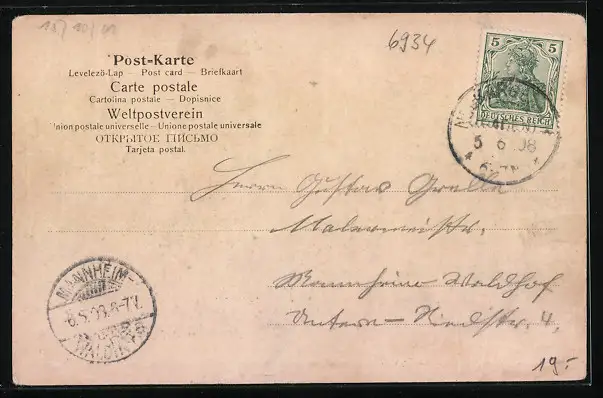 13/10/01
6934
Post-Karte
Levelező-Lap — Post card — Briefkaart
Carte postale
Cartolina postale — Dopisnice
Weltpostverein
Union postale universelle — Unione postale universale
ОТКРЫТОЕ ПИСЬМО
Tarjeta postal.
5 5
DEUTSCHES REICH
5 6 08
Herrn Gustav
Malermeister.
Mannheim-Waldhof
Untere-Riedstr. 4.
MANNHEIM-
WALDHOF
19.-